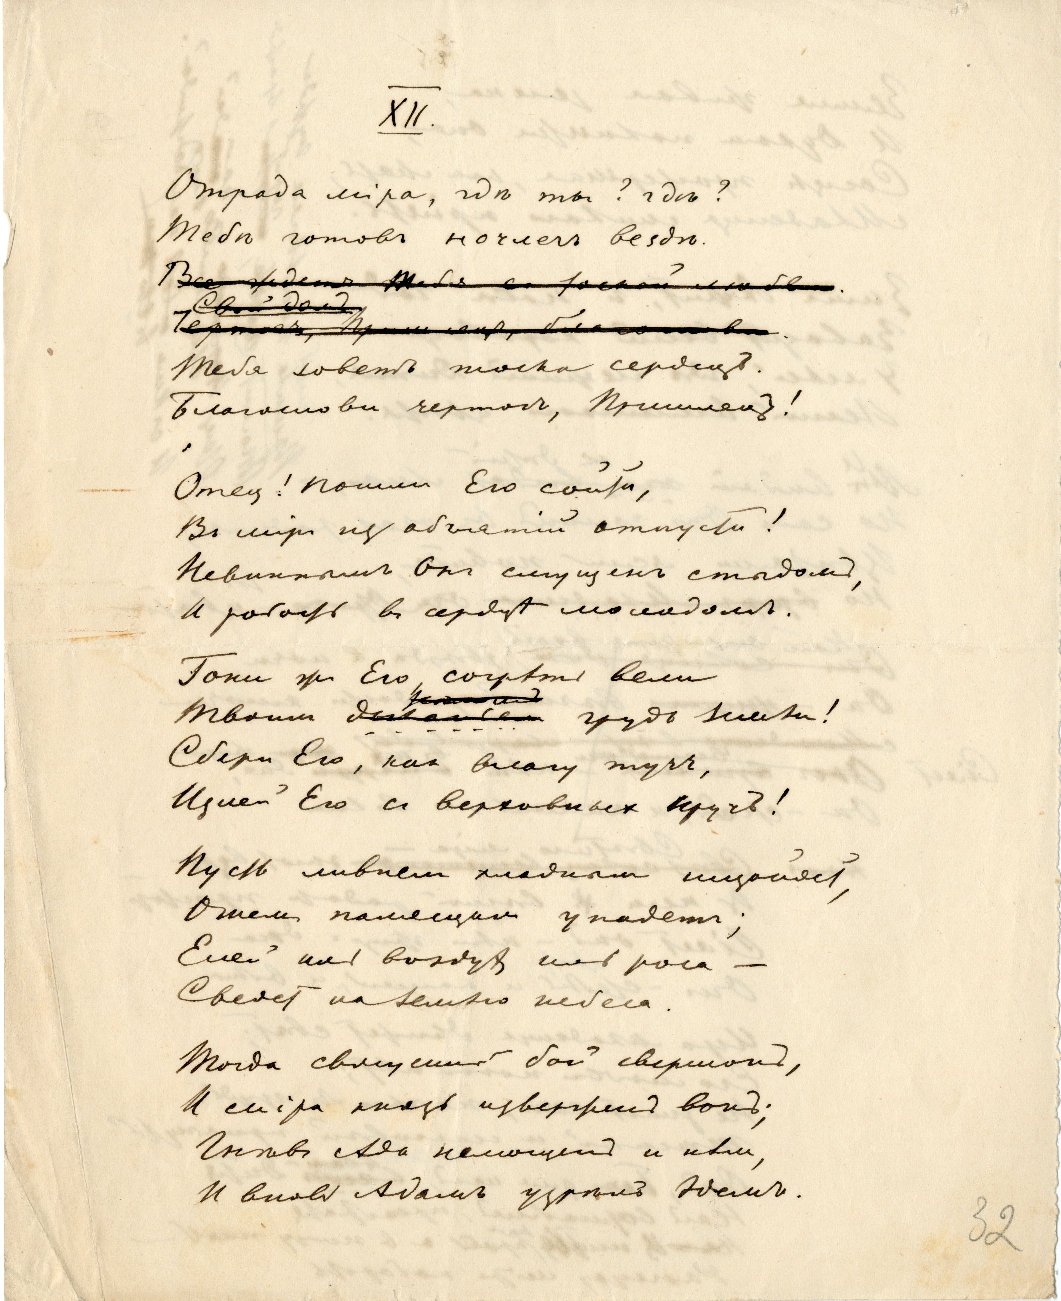 XII.
Отрада міра, гдѣ ты? гдѣ?
Тебѣ готовъ ночлегъ вездѣ.
Все ждетъ Тебя съ тоской любви.
Свой домъ
Чертогъ, Пришлецъ, благослови.
Тебя зоветъ тоска сердецъ.
Благослови чертогъ, Пришлецъ!
Отец! пошли Его сойти,
Въ міръ из объятій отпусти!
Невиннымъ Онъ смущенъ стыдомъ,
И робость въ сердцѣ молодомъ.
Гони жъ Его, согрѣть вели
Твоимъ грудь земли!
Сбери Его, как влагу тучъ,
Излей Его съ верховныхъ кручъ!
Пусть ливнем хладным низойдетъ,
Огнемъ палящимъ упадетъ;
Елей иль воздухъ иль роса —
Сведетъ на землю небеса.
Тогда священный бой свершонъ,
И міра князь изверженъ вонъ;
Гнѣвъ Ада немощенъ и нѣмъ,
И вновь Адамъ узрѣлъ Эдемъ.
32